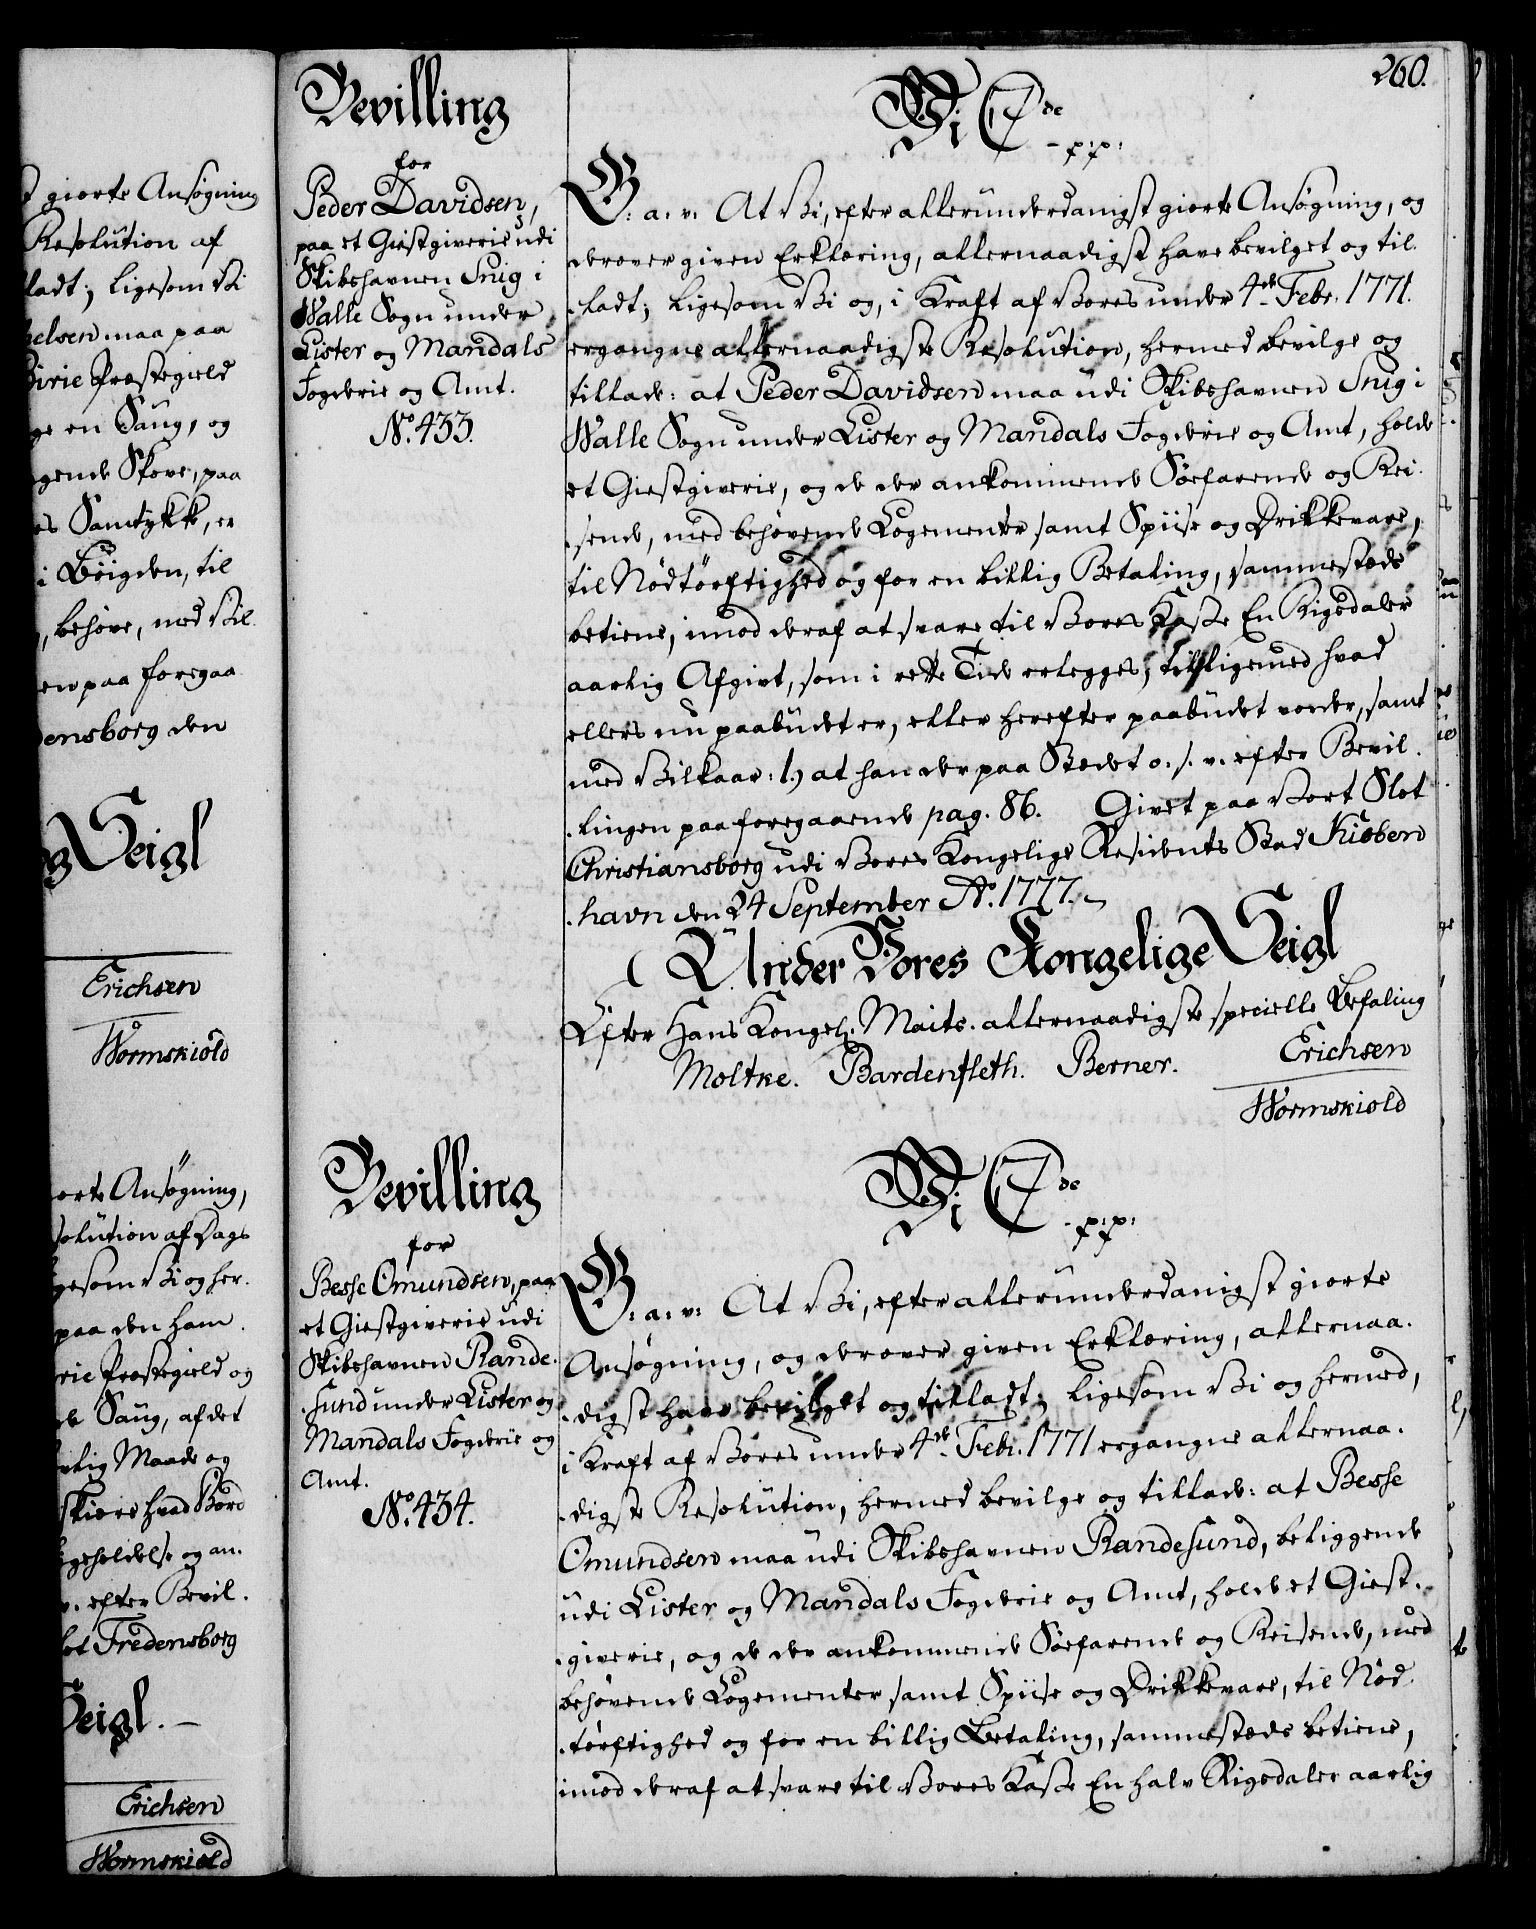 t giorte Ansøgning
Resolution af
ladt; ligesom Vi
elsen maa paa
Birie Præstegield
ge en Saug, og
gende Skove, paa
es Samtykk, er
i Bøigden, til
, behøve, med Vil
en paa foregaa
densborg den
og Seigl
Erichsen
Wormskiold
orte Ansøgning,
solution af Dags
gesom Vi og her.
paa den ham
rie Præstegield og
de Saug, af det
rlig Maade og
skiære hvad Bord
geholdelse og an.
v. efter Bevil.
lot Fredensborg
Seigl. —
Erichsen
Wormskiold
260.
Bevilling
for
Peder Davidsen,
paa et Giestgiverie udi
Skibshavnen Snig i
Walle Sogn under
Lister og Mandals
Fogderie og Amt.
No. 433.
Vi C 7de
- p:p:
G: a: v: At Vi, efter allerunderdanigst giorte Ansøgning, og
derover given Erklæring, allernaadigst have bevilget og til.
.ladt; ligesom Vi og, i Kraft af Vores under 4de Febr. 1771.
ergangne allernaadigste Resolution, hermed bevilge og
tillade: at Peder Davidsen maa udi Skibshavnen Snig i
Walle Sogn under Lister og Mandals Fogderie og Amt, holde
et Giestgiverie, og de der ankommende Søefarende og Rei.
.sende, med behøvende Logementer samt Spiise og Drikkevare,
til Nødtørftighed og for en billig Betaling, sammestæds
betiene, imod deraf at svare til Vores Kasse En Rigsdaler
aarlig Afgivt, som i rette Tid erlegges, tilligemed hvad
ellers nu paabudet er, eller herefter paabudet vorder, samt
med Vilkaar: 1.) at han der paa Stædet o. s. v. efter Bevil.
.lingen paa foregaaende pag. 86. Givet paa Vort Slot
Christiansborg udi Vores Kongelige Residents Stad Kiøben
.havn den 24 September Ao. 1777.
Under Vores Kongelige Seigl
Efter Hans Kongel. Maits. allernaadigste specielle Befaling
Moltke. Bardenfleth. Berner. Erichsen
Wormskiold
Bevilling
for
Besse Omundsen, paa
et Giestgiverie udi
Skibshavnen Rande.
.sund under Lister og
Mandals Fogderie og
Amt.
No. 434.
Vi C 7de
- p:p:
G: a: v: At Vi, efter allerunderdanigst giorte
Ansøgning, og derover given Erklæring, allernaa.
.digst have bevilget og tilladt; ligesom Vi og hermed,
i Kraft af Vores under 4de Febr. 1771 ergangne allernaa.
.digste Resolution, hermed bevilge og tillade: at Besse
Omundsen maa udi Skibshavnen Randesund, beliggende
udi Lister og Mandals Fogderie og Amt, holde et Giest.
.giverie, og de der ankommende Søefarende og Reisende, med
behøvende Logementer samt Spiise og Drikkevare, til Nød.
.tørftighed og for en billig Betaling, sammestæds betiene,
imod deraf at svare til Vores Kasse En halv Rigsdaler aarlig